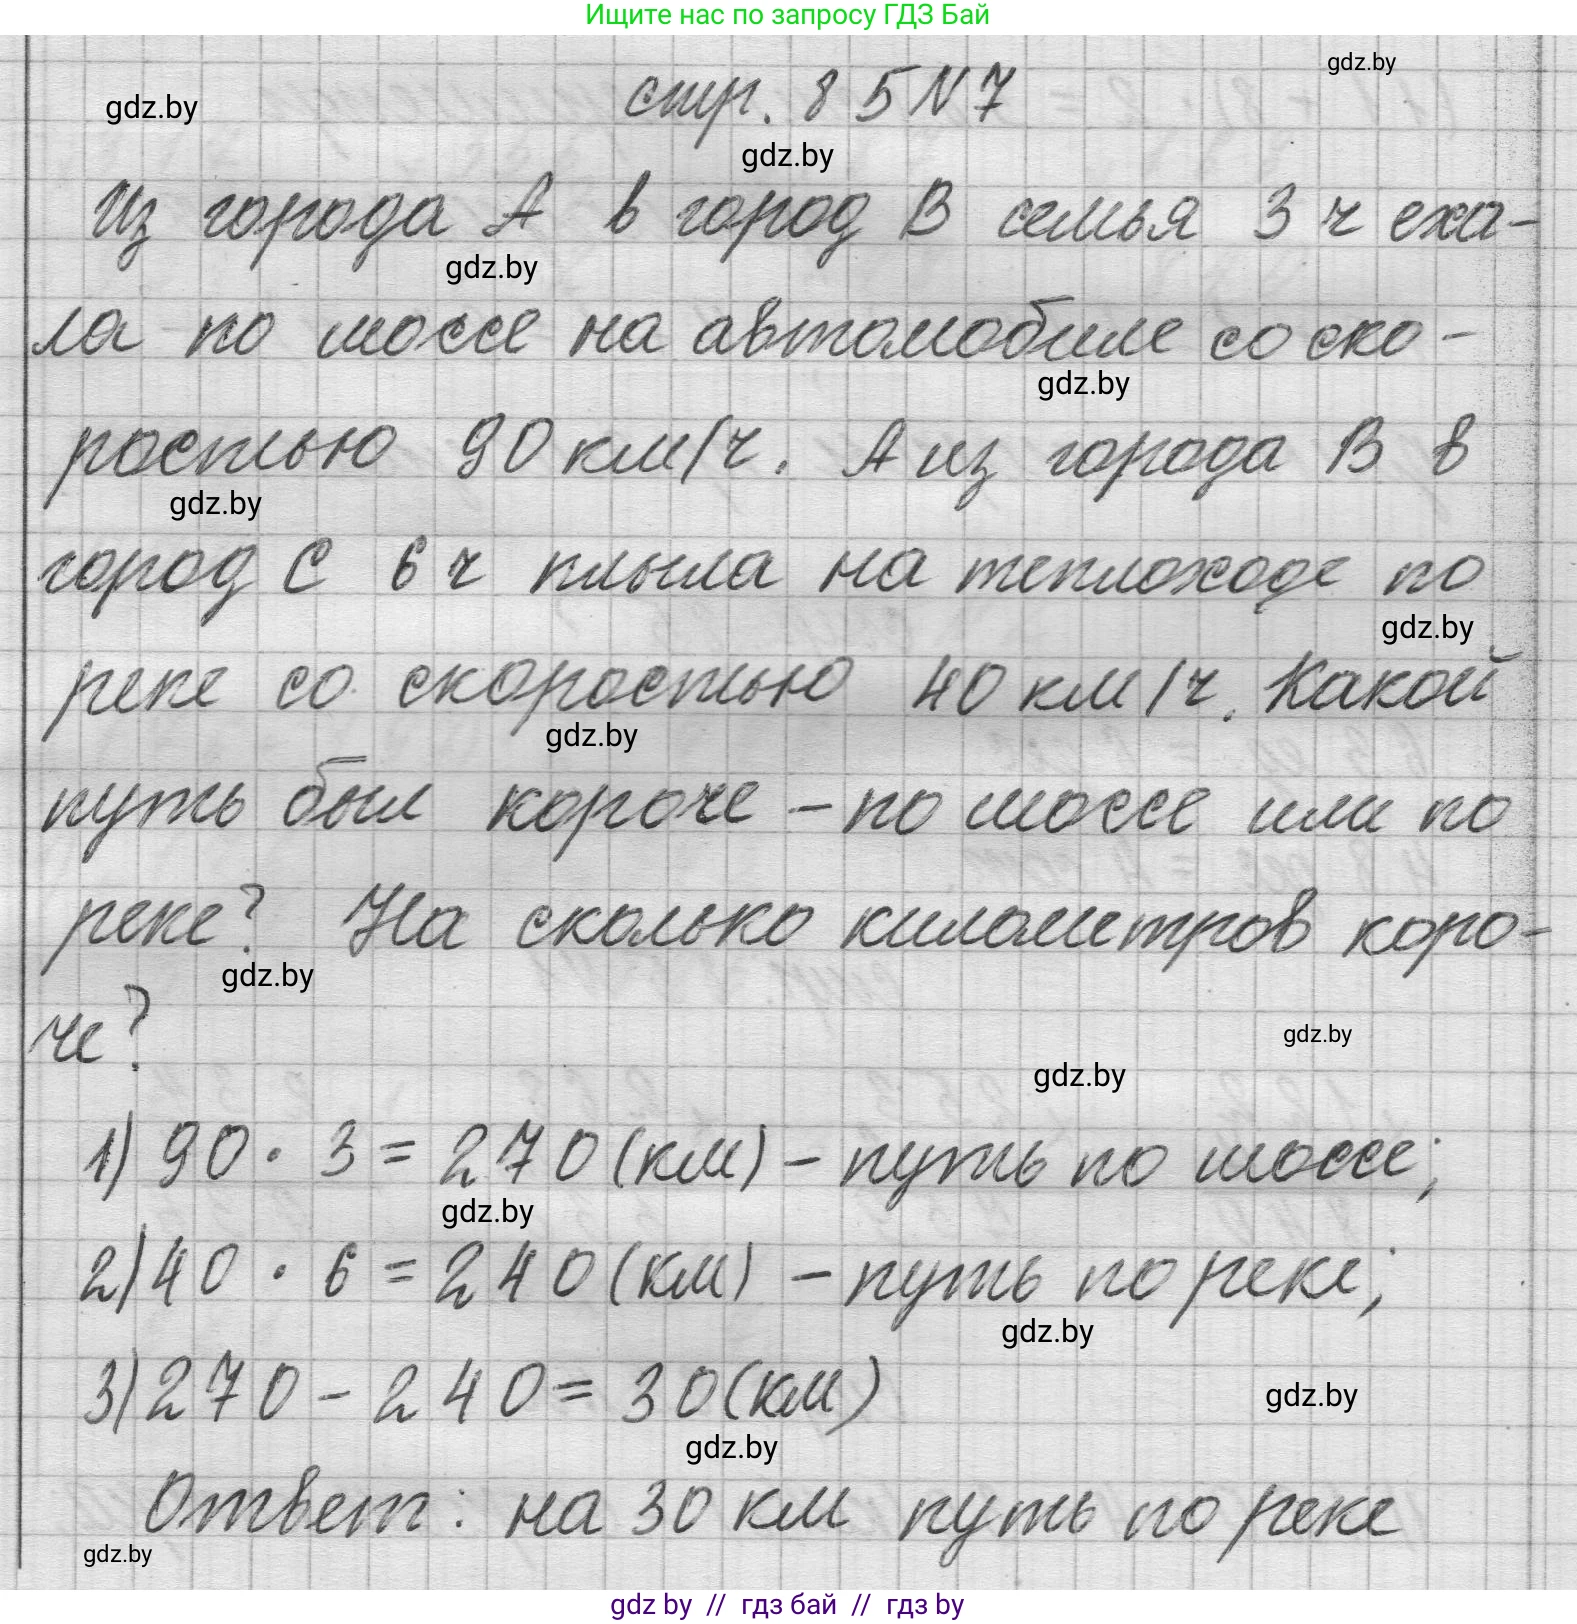 Ищите нас по запросу ГДЗ Бай
gdz.by
стр. 85 N 7
gdz.by
gdz.by
Из города А в город В семья 3 ч еха-
gdz.by
ла по шоссе на автомобиле со ско-
gdz.by
ростью 90 км/ч. А из города В в
gdz.by
город С 6 ч плыла на теплоходе по
gdz.by
реке со скоростью 40 км/ч. Какой
gdz.by
путь был короче – по шоссе или по
реке? На сколько километров коро-
gdz.by
че?
gdz.by
gdz.by
1) 90 · 3 = 270 (км) – путь по шоссе;
gdz.by
2) 40 · 6 = 240 (км) – путь по реке;
gdz.by
3) 270 - 240 = 30 (км)
gdz.by
gdz.by
Ответ: на 30 км путь по реке
gdz.by
gdz by // гдз бай // гдз by